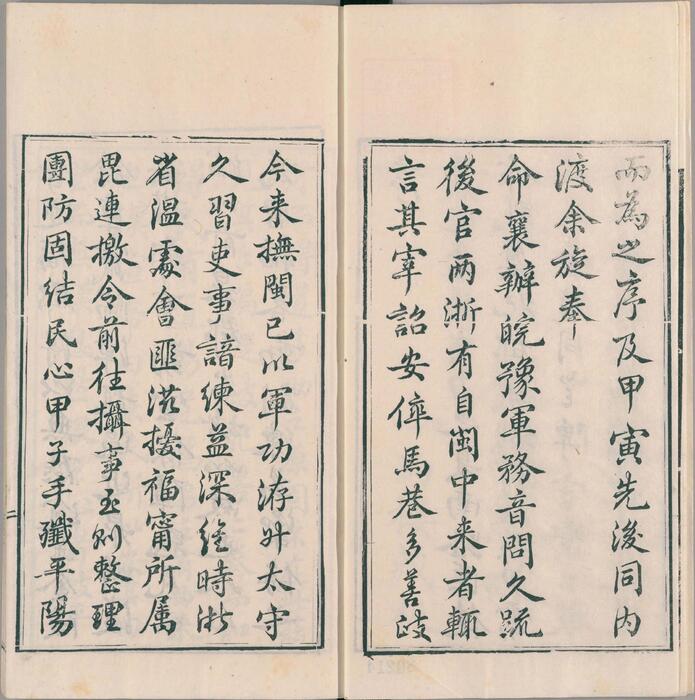 而為之序及甲寅先後同內
渡余旋奉
命襄辦皖豫軍務音問久疏
後官兩浙有自閩中来者輒
言其宰詔安倅馬巷多善政
今来撫閩已以軍功洊升太守
久習吏事諳練益深維時浙
省溫處會匪滋擾福甯所属
毘連檄令前往攝事至則整理
團防固結民心甲子手殲平陽
二